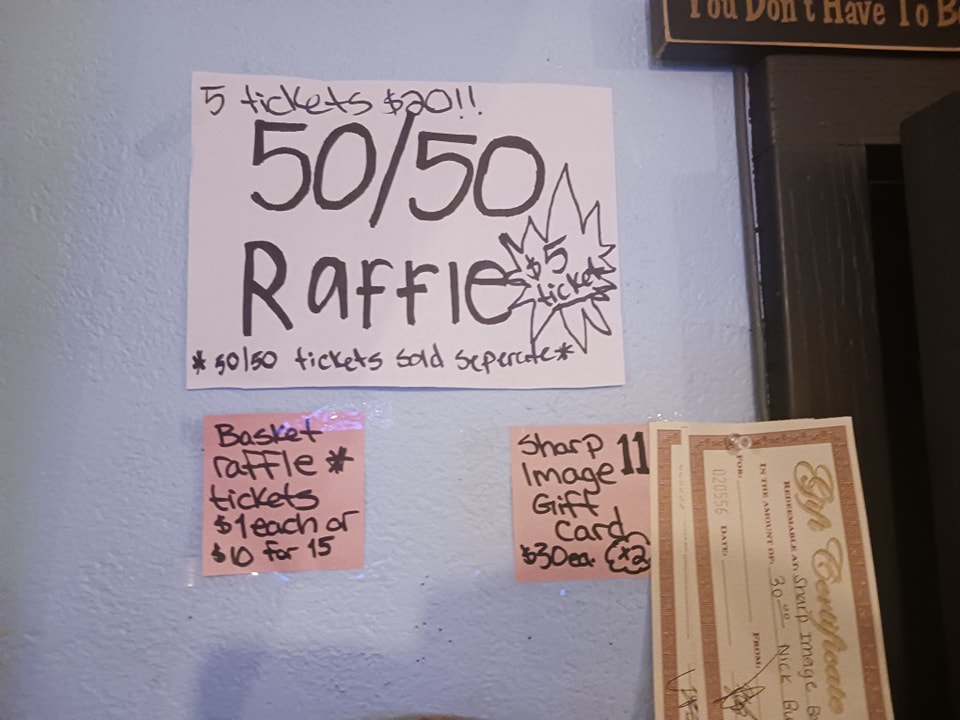 You Don't Have To B
5 tickets $20!!
50/50
Raffle
$5
ticket
* 50/50 tickets sold seperate *
Basket
raffle *
tickets
$1 each or
$10 for 15
Sharp 11
Image
Gift
Card
$30 ea. x2
Gift Certificate
REDEEMABLE AT Sharp Image B
IN THE AMOUNT OF: 30.00 Nick Bu
FOR: FROM:
020556 DATE: